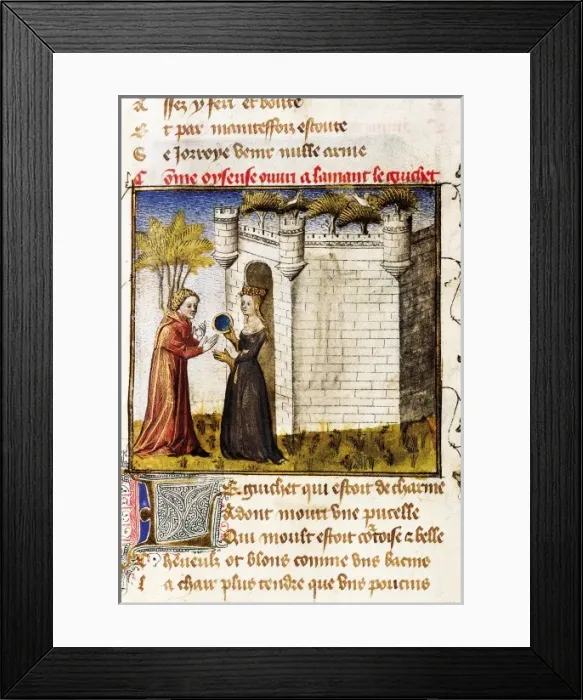 A ssez y feri et boute
E t par maintesfois escoute
S e Jorroye venir nulle arme
Cõme oyseuse ouuri a lamant le guichet
Le guichet qui estoit de charme
A dont mouri vne pucelle
Qui moult estoit cortoise & belle
Cheueulx ot blons comme vns bacins
La chair plus tendre que vns poucins